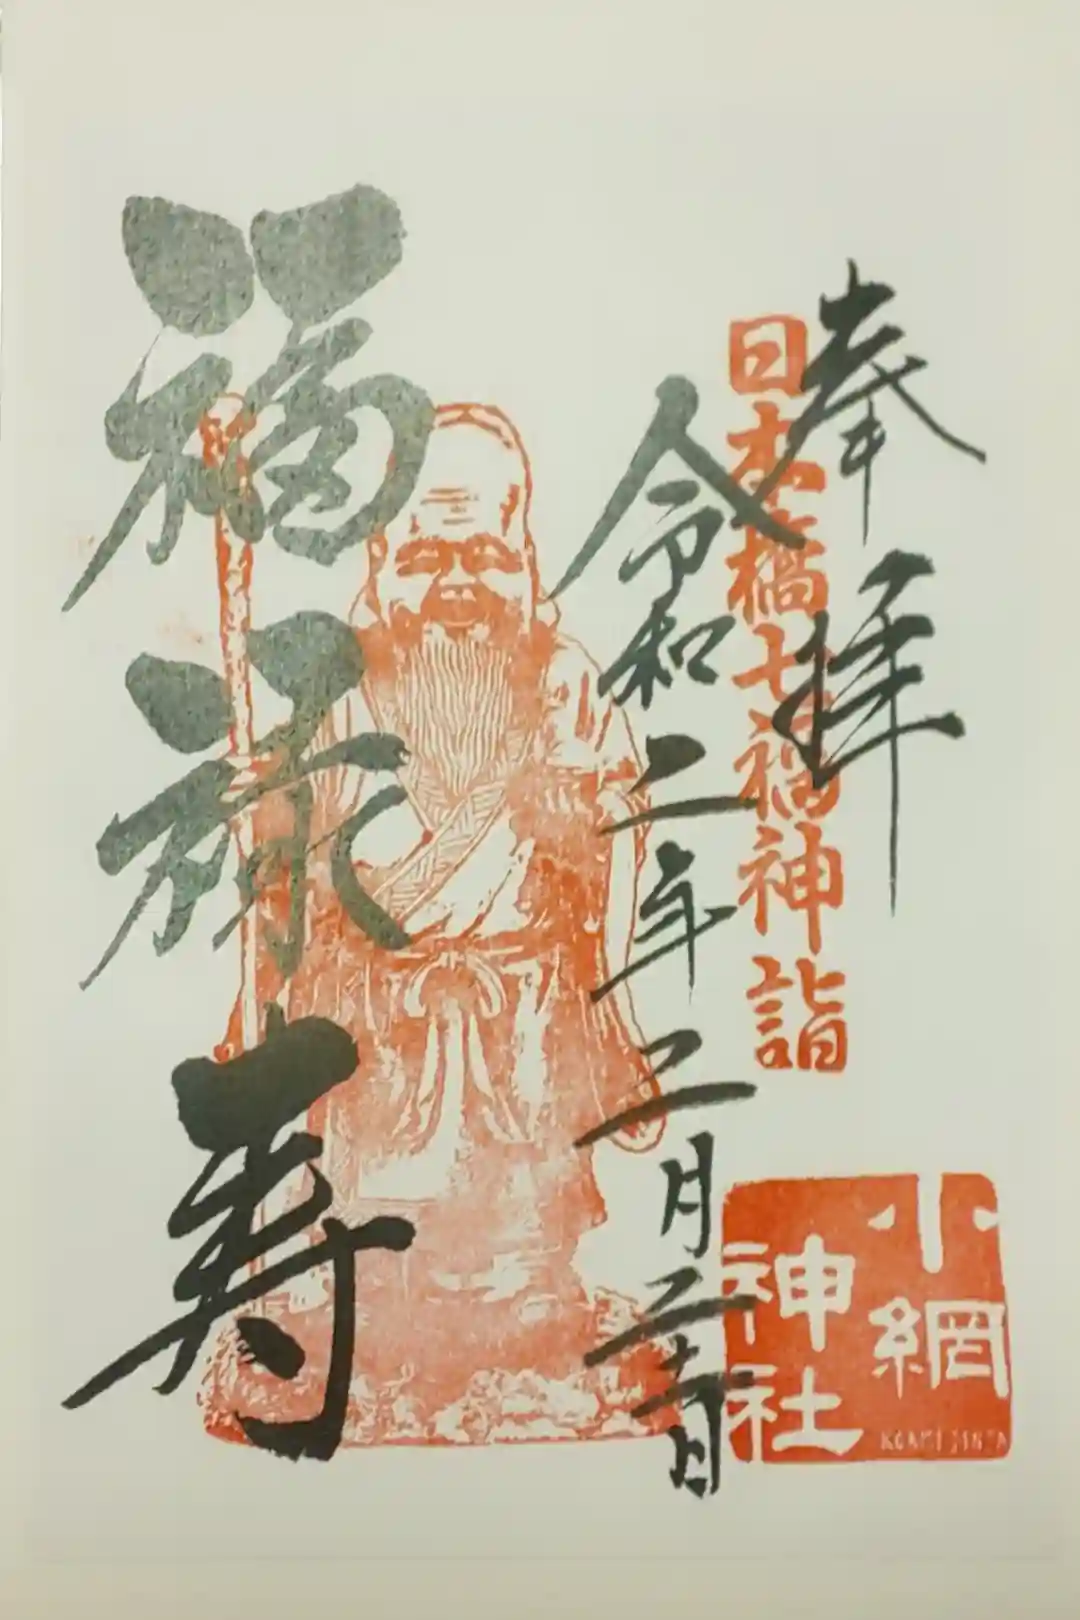 奉拝
日本橋七福神詣
小網
神社
KOAMI JINJA
令和二年二月二十日
福禄寿